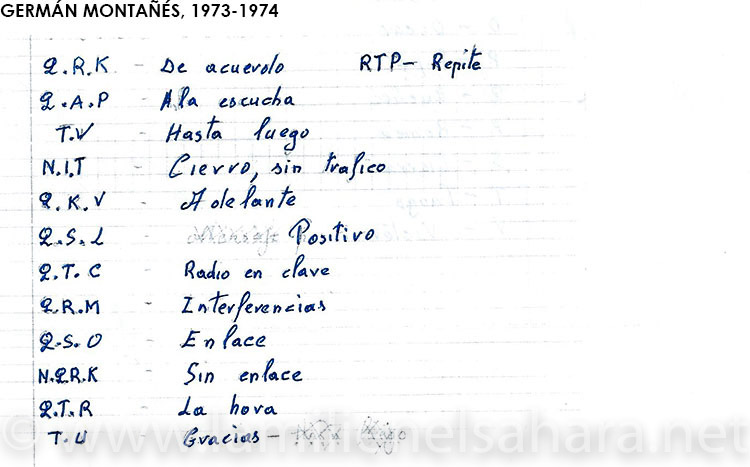 GERMÁN MONTAÑÉS, 1973-1974
Q.R.K - De acuerdo RTP- Repite
Q.A.P - A la escucha
T.V - Hasta luego
N.I.T - Cierro, sin trafico
Q.K.V - Adelante
Q.S.L - Positivo
Q.T.C - Radio en clave
Q.R.M - Interferencias
Q.S.O - Enlace
N.Q.R.K - Sin enlace
Q.T.R - La hora
T.U - Gracias -
© www.lamilienelsahara.net